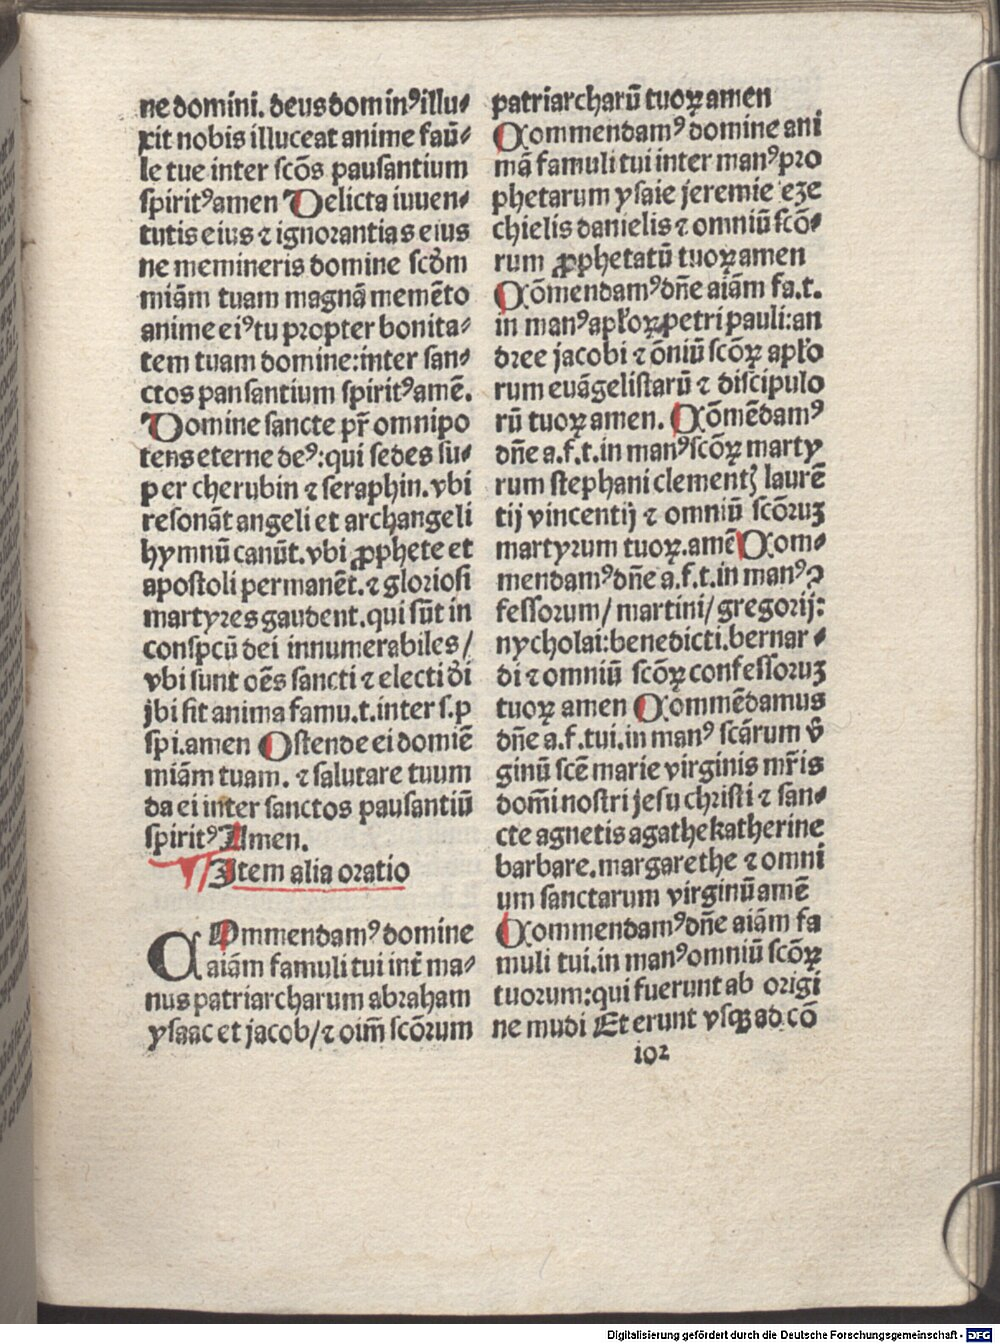 ne domini. deus dominꝰ illu⸗
xit nobis illuceat anime faū⸗
le tue inter scōs pausantium
spiritꝰ amen Delicta iuuen⸗
tutis eius ⁊ ignorantias eius
ne memineris domine scd̄m
miām tuam magnā memēto
anime eiꝰ tu propter bonita⸗
tem tuam domine:inter san⸗
ctos pansantium spiritꝰ amē.
Domine sancte pr̄ omnipo
tens eterne deꝰ:qui sedes su⸗
per cherubin ⁊ seraphin.vbi
resonāt angeli et archangeli
hymnū canūt.vbi ꝓphete et
apostoli permanēt.⁊ gloriosi
martyres gaudent.qui sūt in
conspcū dei innumerabiles/
vbi sunt oēs sancti ⁊ electi d̄i
jbi sit anima famu.t.inter s.p
spi.amen Ostende ei domiē
miām tuam. ⁊ salutare tuum
da ei inter sanctos pausantiū
spiritꝰ Amen.
Item alia oratio
COmmendamꝰ domine
aiām famuli tui int̄ ma⸗
nus patriarcharum abraham
ysaac et jacob/⁊ oim̄ scōrum
patriarcharū tuoꝝ amen
Commendamꝰ domine ani
mā famuli tui inter manꝰ pro
phetarum ysaie jeremie eze
chielis danielis ⁊ omniū scō⸗
rum ꝓphetatū tuoꝝ amen
Cōmendamꝰ dn̄e aiām fa.t.
in manꝰ apl̄oꝝ petri pauli:an
dree jacobi ⁊ ōniū scōꝝ apl̄o
rum euāgelistarū ⁊ discipulo
rū tuoꝝ amen. Cōmēdamꝰ
dn̄e a.f.t.in manꝰ scōꝝ marty
rum stephani clementꝭ laurē
tij vincentij ⁊ omniū scōruꝫ
martyrum tuoꝝ.amē Com⸗
mendamꝰ dn̄e a.f.t.in manꝰ ꝯ
fessorum/ martini/ gregorij:
nycholai:benedicti.bernar⸗
di ⁊ omniū scōꝝ confessoruꝫ
tuoꝝ amen Commēdamus
dn̄e a.f.tui.in manꝰ scārum v̄
ginū scē marie virginis mr̄is
dom̄i nostri jesu christi ⁊ san⸗
cte agnetis agathe katherine
barbare.margarethe ⁊ omni
um sanctarum virginū amē
Commendamꝰ dn̄e aiām fa
muli tui.in manꝰ omniū scōꝝ
tuorum:qui fuerunt ab origi
ne mūdi Et erunt vsqꝫ ad cō
102
Digitalisierung gefördert durch die Deutsche Forschungsgemeinschaft - DFG